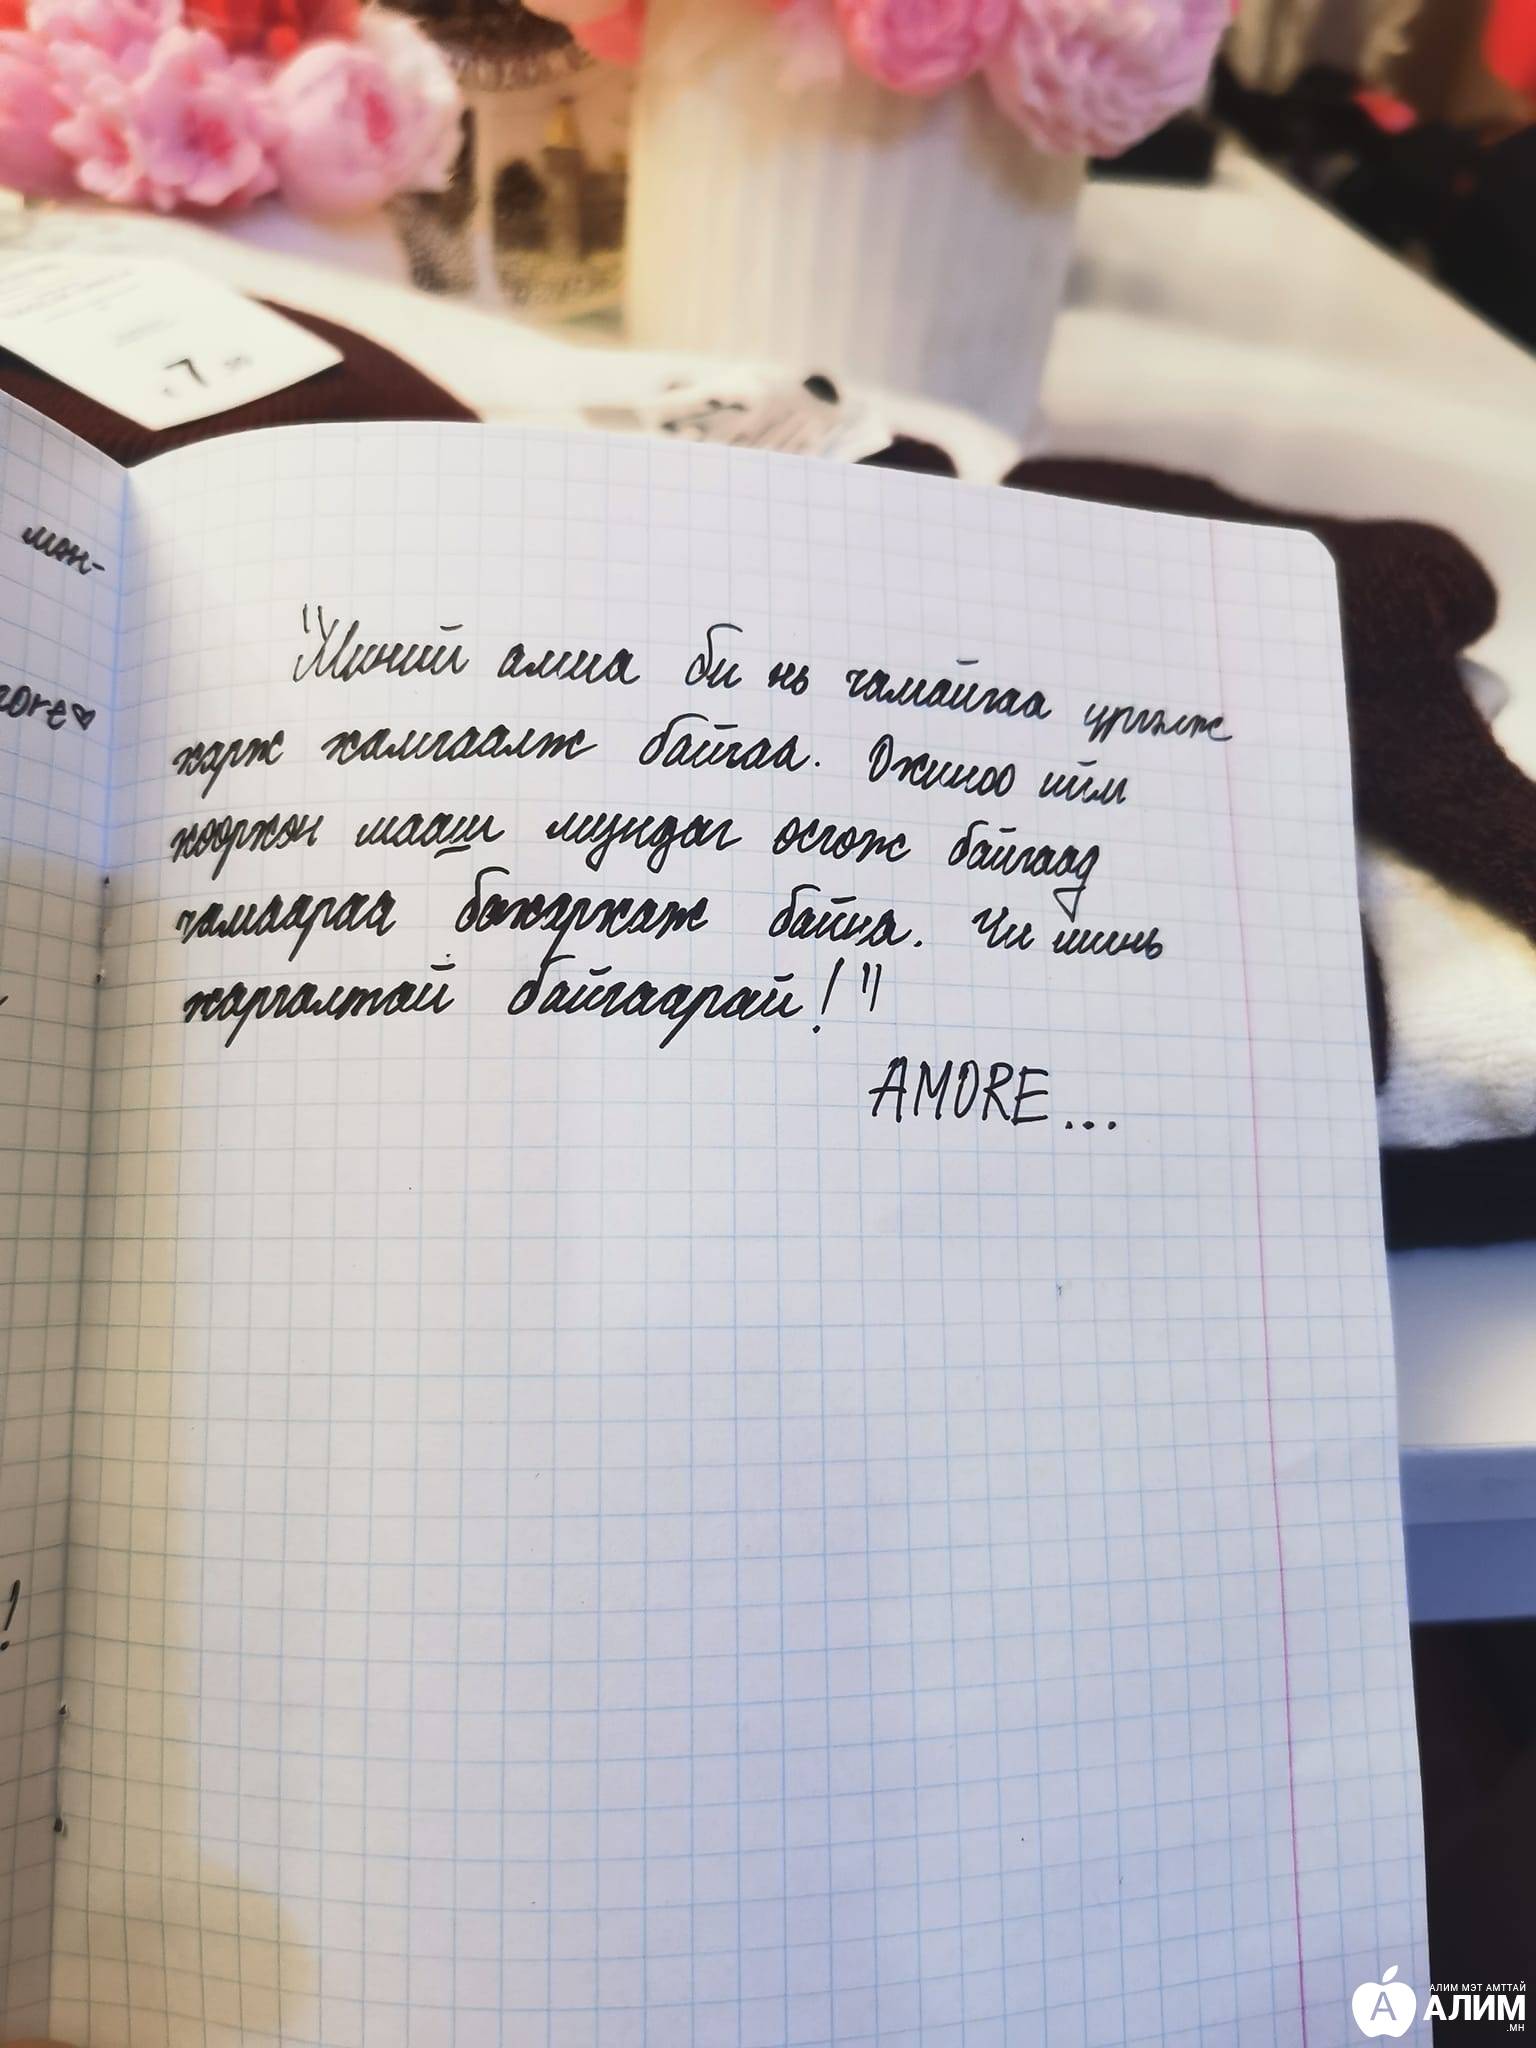 мөн-
ore♥
!
"Миний амиа би нь чамайгаа үргэлж
харж хамгаалж байгаа. Джиноо ийм
хөөрхөн мааш мундаг өсгөж байгаад
чамаараа бахархаж байна. Чи минь
жаргалтай байгаарай!"
AMORE...
7
АЛИМ МЭТ АМТТАЙ
АЛИМ
.МН